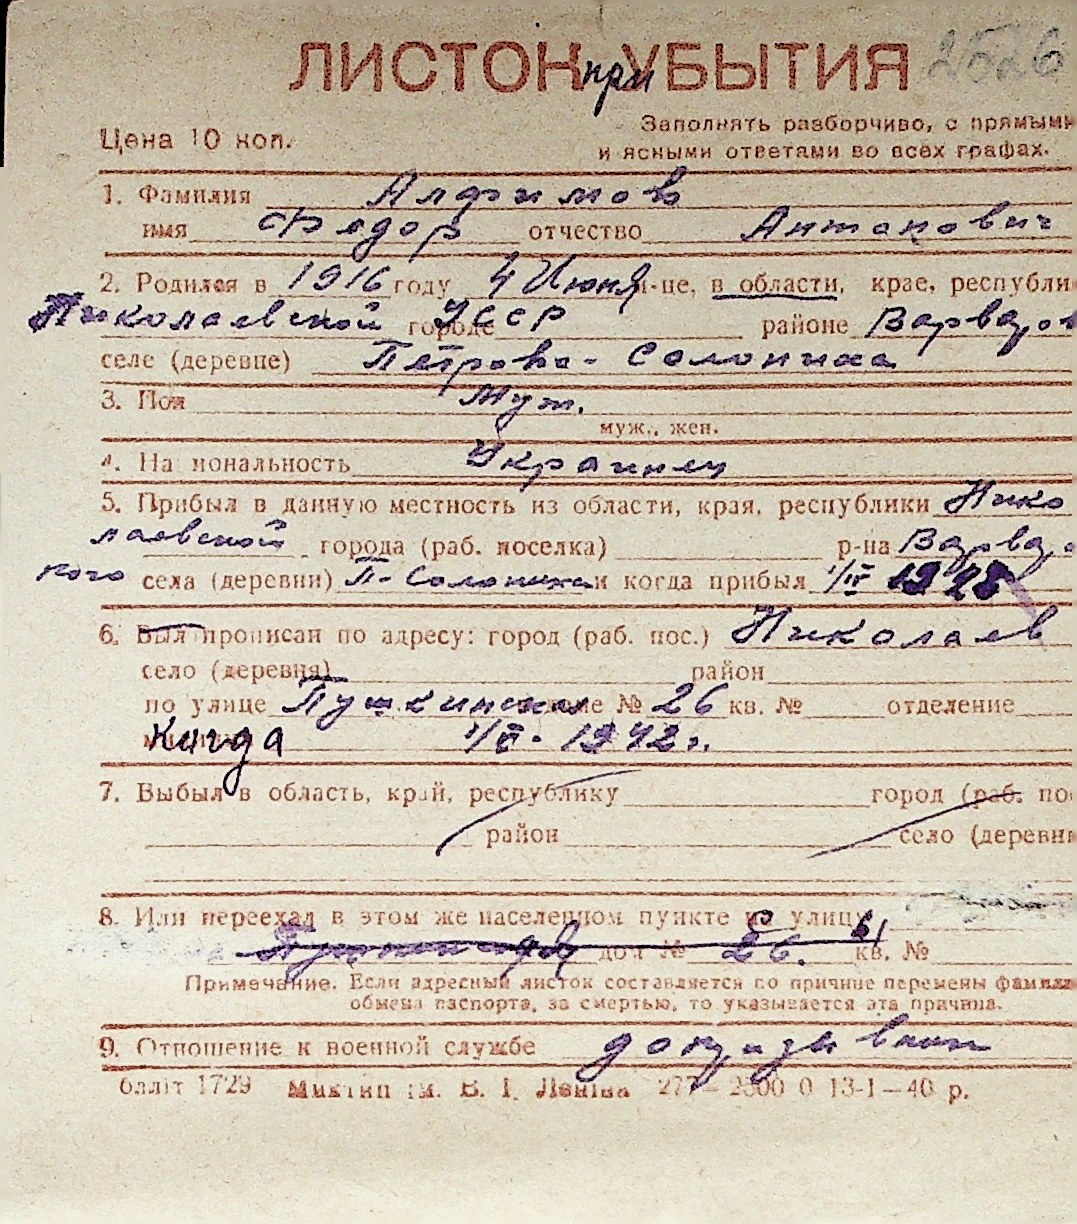 ЛИСТОК при УБЫТИЯ 2526
Цена 10 коп.
Заполнять разборчиво, с прямыми
и ясными ответами во всех графах.
1. Фамилия Алфимов
имя Федор отчество Антонович
2. Родился в 1916 году 4 Июня м-це, в области, крае, республи
Николаевской УССР городе районе Варваров
селе (деревне) Петрово-Солониха
3. Пол Муж.
муж., жен.
4. Национальность Украинец
5. Прибыл в данную местность из области, края, республики Нико
лаевской города (раб. поселка) р-на Варваро
кого села (деревни) П-Солониха и когда прибыл 1/IV
6. Был прописан по адресу: город (раб. пос.) Николаев
село (деревня) район
по улице Пушкинская № 26 кв. № отделение
Когда 1942 г.
7. Выбыл в область, край, республику город (раб. пос
район село (деревни
8. Или переехал в этом же населенном пункте на улицу
дом № 26. кв. №
Примечание. Если адресный листок составляется по причине перемены фамили
обмена паспорта, за смертью, то указывается эта причина.
9. Отношение к военной службе допризывник
балліт 1729 Миктип ім. В. І. Леніна 277—2500 0 13-1—40 р.